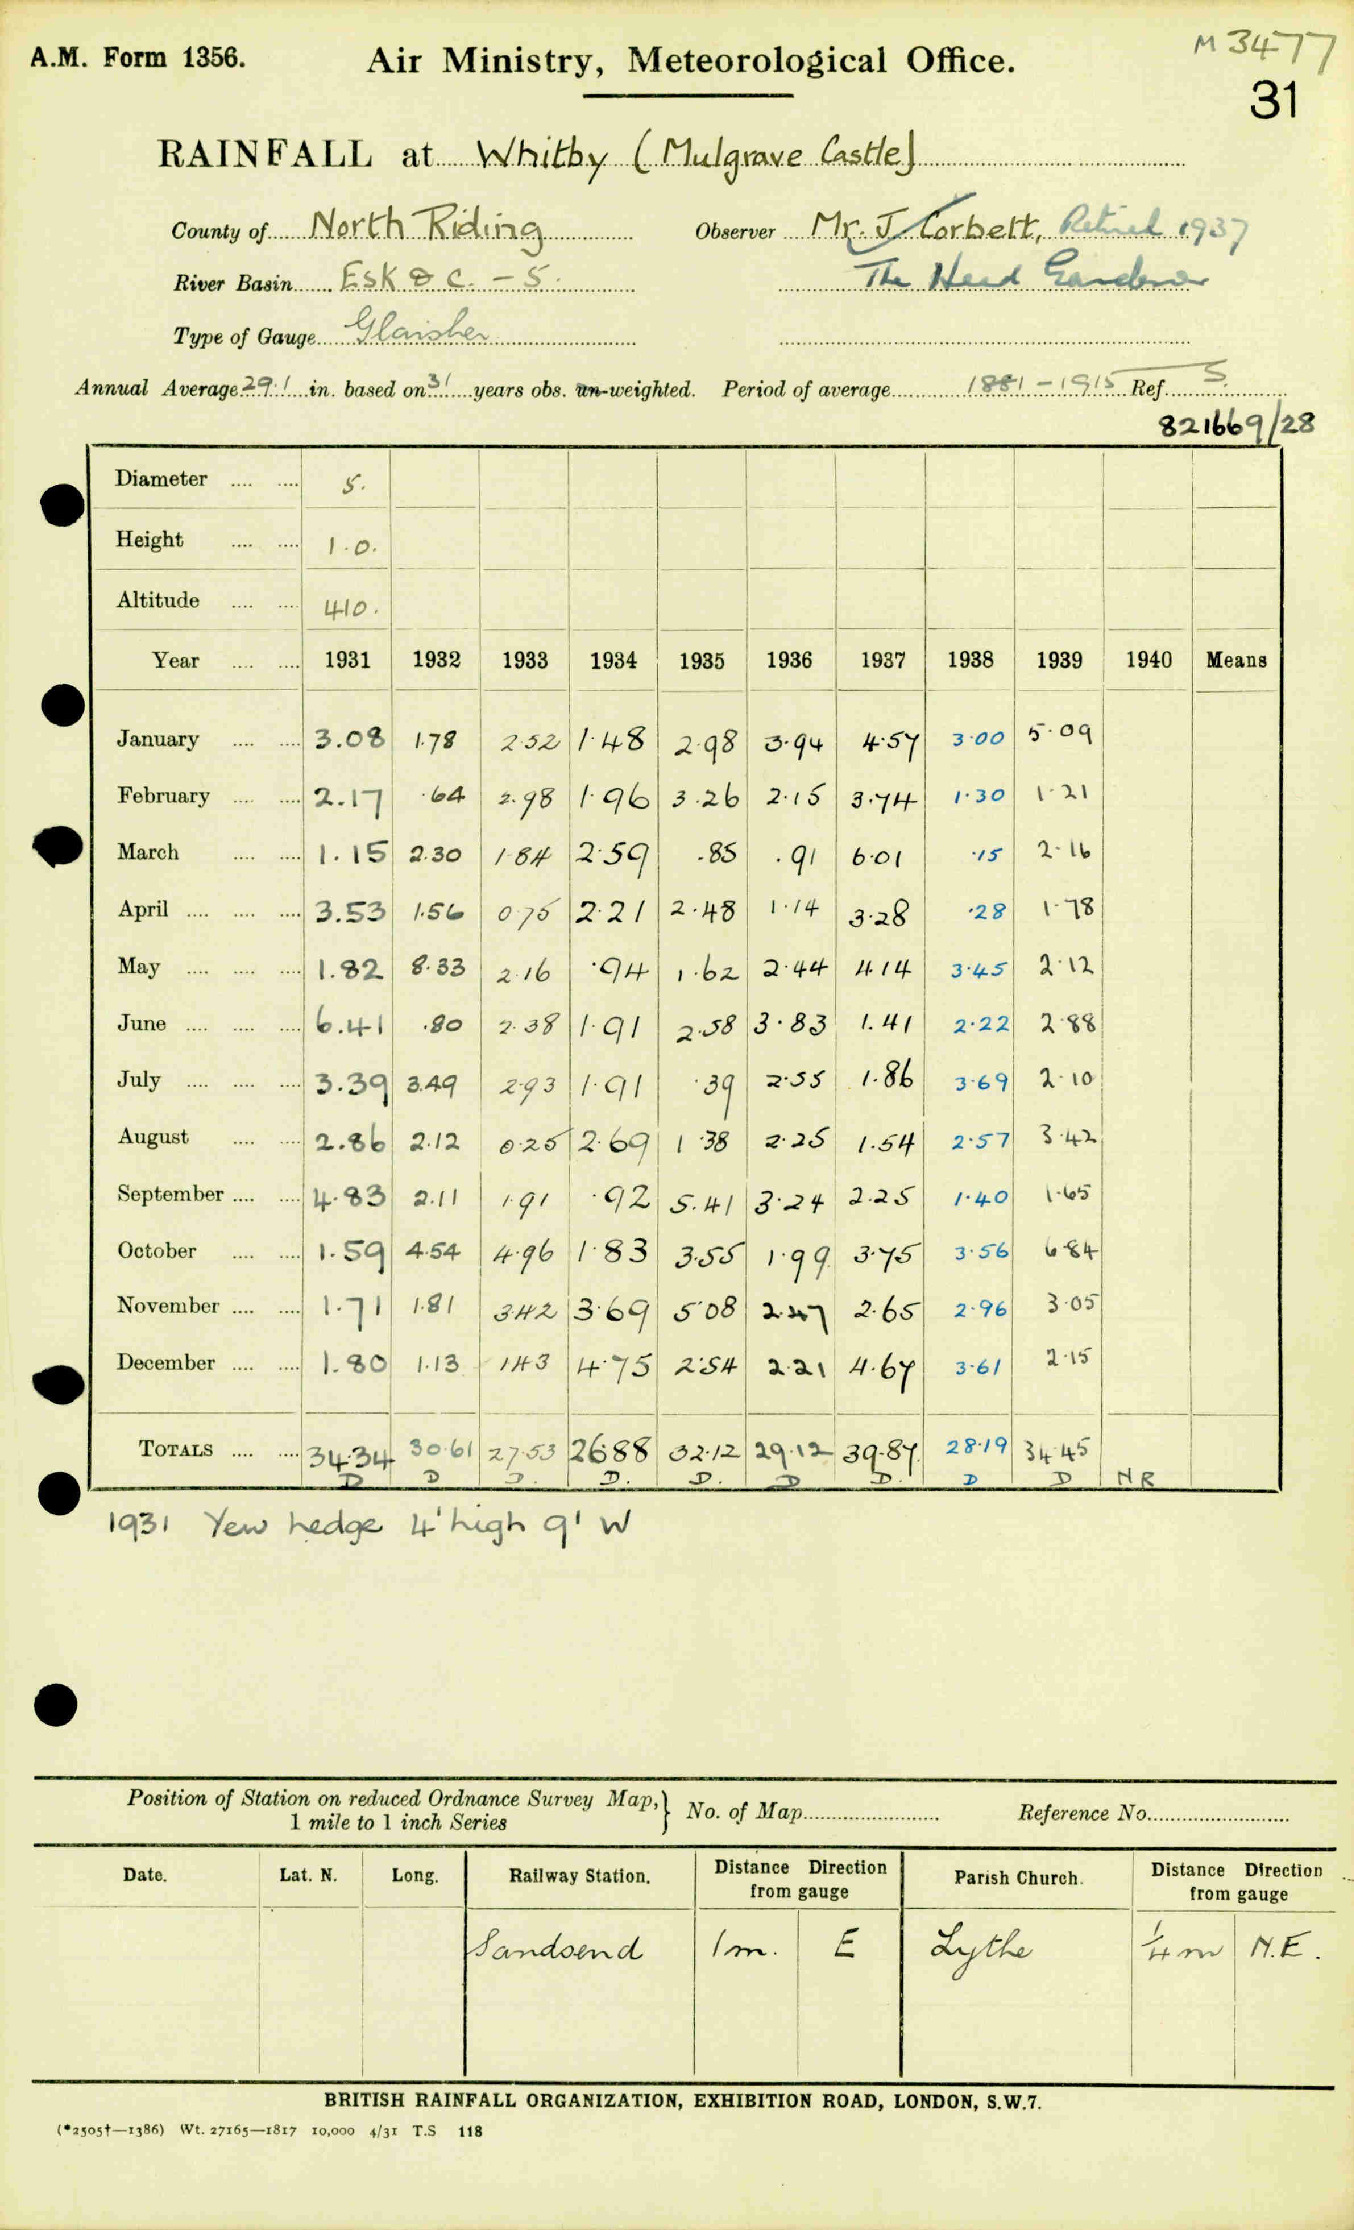 M 3477
A.M. Form 1356. Air Ministry, Meteorological Office.
31
RAINFALL at Whitby (Mulgrave Castle)
County of North Riding Observer Mr. J Corbett, Retired 1937
River Basin Esk & c. - 5. The Head Gardener
Type of Gauge Glaisher
Annual Average 29.1 in. based on 31 years obs. un-weighted. Period of average 1881-1915 Ref. S.
821669/28
Diameter .... .... 5.
Height .... .... 1.0.
Altitude .... .... 410.
Year .... .... 1931 1932 1933 1934 1935 1936 1937 1938 1939 1940 Means
January .... .... 3.08 1.78 2.52 1.48 2.98 3.94 4.57 3.00 5.09
February .... .... 2.17 .64 2.98 1.96 3.26 2.15 3.74 1.30 1.21
March .... .... 1.15 2.30 1.84 2.59 .85 .91 6.01 .15 2.16
April .... .... .... 3.53 1.56 0.75 2.21 2.48 1.14 3.28 .28 1.78
May .... .... .... 1.82 8.33 2.16 .94 1.62 2.44 4.14 3.45 2.12
June .... .... .... 6.41 .80 2.38 1.91 2.58 3.83 1.41 2.22 2.88
July .... .... .... 3.39 3.49 2.93 1.91 .39 2.55 1.86 3.69 2.10
August .... .... 2.86 2.12 0.25 2.69 1.38 2.25 1.54 2.57 3.42
September .... .... 4.83 2.11 1.91 .92 5.41 3.24 2.25 1.40 1.65
October .... .... 1.59 4.54 4.96 1.83 3.55 1.99 3.75 3.56 6.84
November .... .... 1.71 1.81 3.42 3.69 5.08 2.47 2.65 2.96 3.05
December .... .... 1.80 1.13 1.43 4.75 2.54 2.21 4.67 3.61 2.15
TOTALS .... .... 34.34 30.61 27.53 26.88 32.12 29.12 39.87 28.19 34.45
D D D. D. D. D D. D D NR
1931 Yew hedge 4' high 9' W
Position of Station on reduced Ordnance Survey Map, } No. of Map Reference No.
1 mile to 1 inch Series
Date. Lat. N. Long. Railway Station. Distance Direction from gauge Parish Church. Distance Direction from gauge
Sandsend 1m. E Lythe 1/4 m N.E.
BRITISH RAINFALL ORGANIZATION, EXHIBITION ROAD, LONDON, S.W.7.
(*2505†—1386) Wt. 27165—1817 10,000 4/31 T.S 118